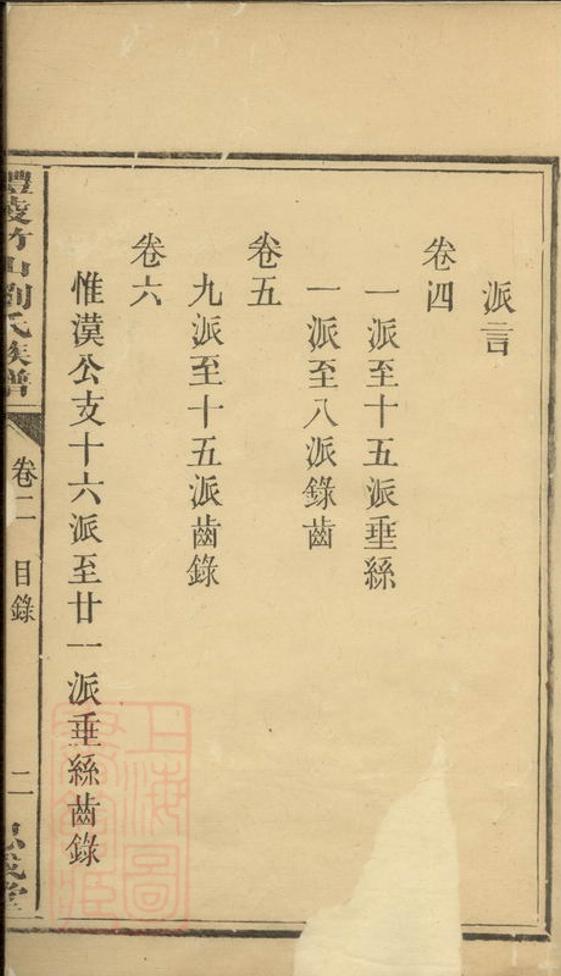 派言
卷四
一派至十五派垂絲
一派至八派錄齒
卷五
九派至十五派齒錄
卷六
惟漠公支十六派至廿一派垂絲齒錄
醴陵竹山劉氏族譜
卷二
目錄
二
上海圖
書館藏